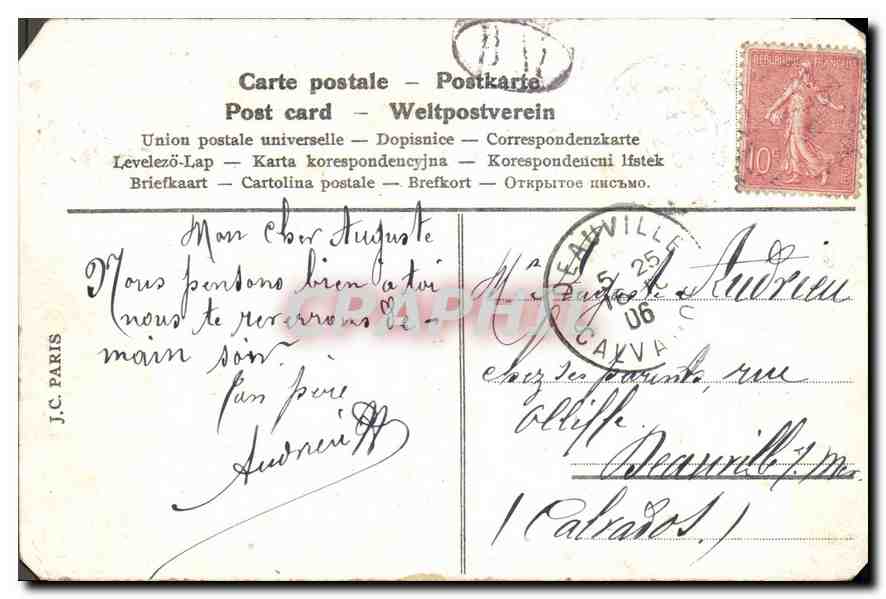 B M
Carte postale – Postkarte
Post card – Weltpostverein
Union postale universelle – Dopisnice – Correspondenzkarte
Levelező-Lap – Karta korespondencyjna – Korespondencni lístek
Briefkaart – Cartolina postale – Brefkort – Открытое письмо.
REPUBLIQUE FRANÇAISE
10 c
Mon cher Auguste
Nous pensons bien à toi
nous te reverrons de-
main soir
Ton père
Andrieu
J.C. PARIS
CARPHIL
DEAUVILLE
5 25
06
CALVADOS
Mr Auguste Andrieu
chez ses parents, rue
Olliffe
Deauville s/ Mer
(Calvados.)